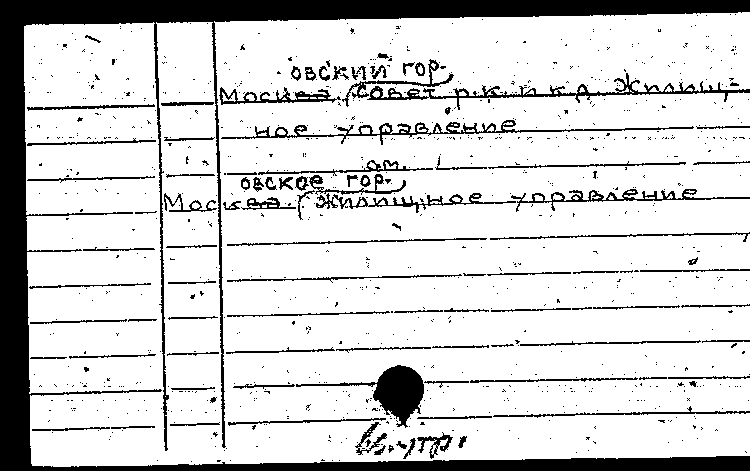 овский гор-
Москва. Совет р.к. и к.д. Жилищ-
ное управление
см.
овское гор-
Москва. Жилищное управление